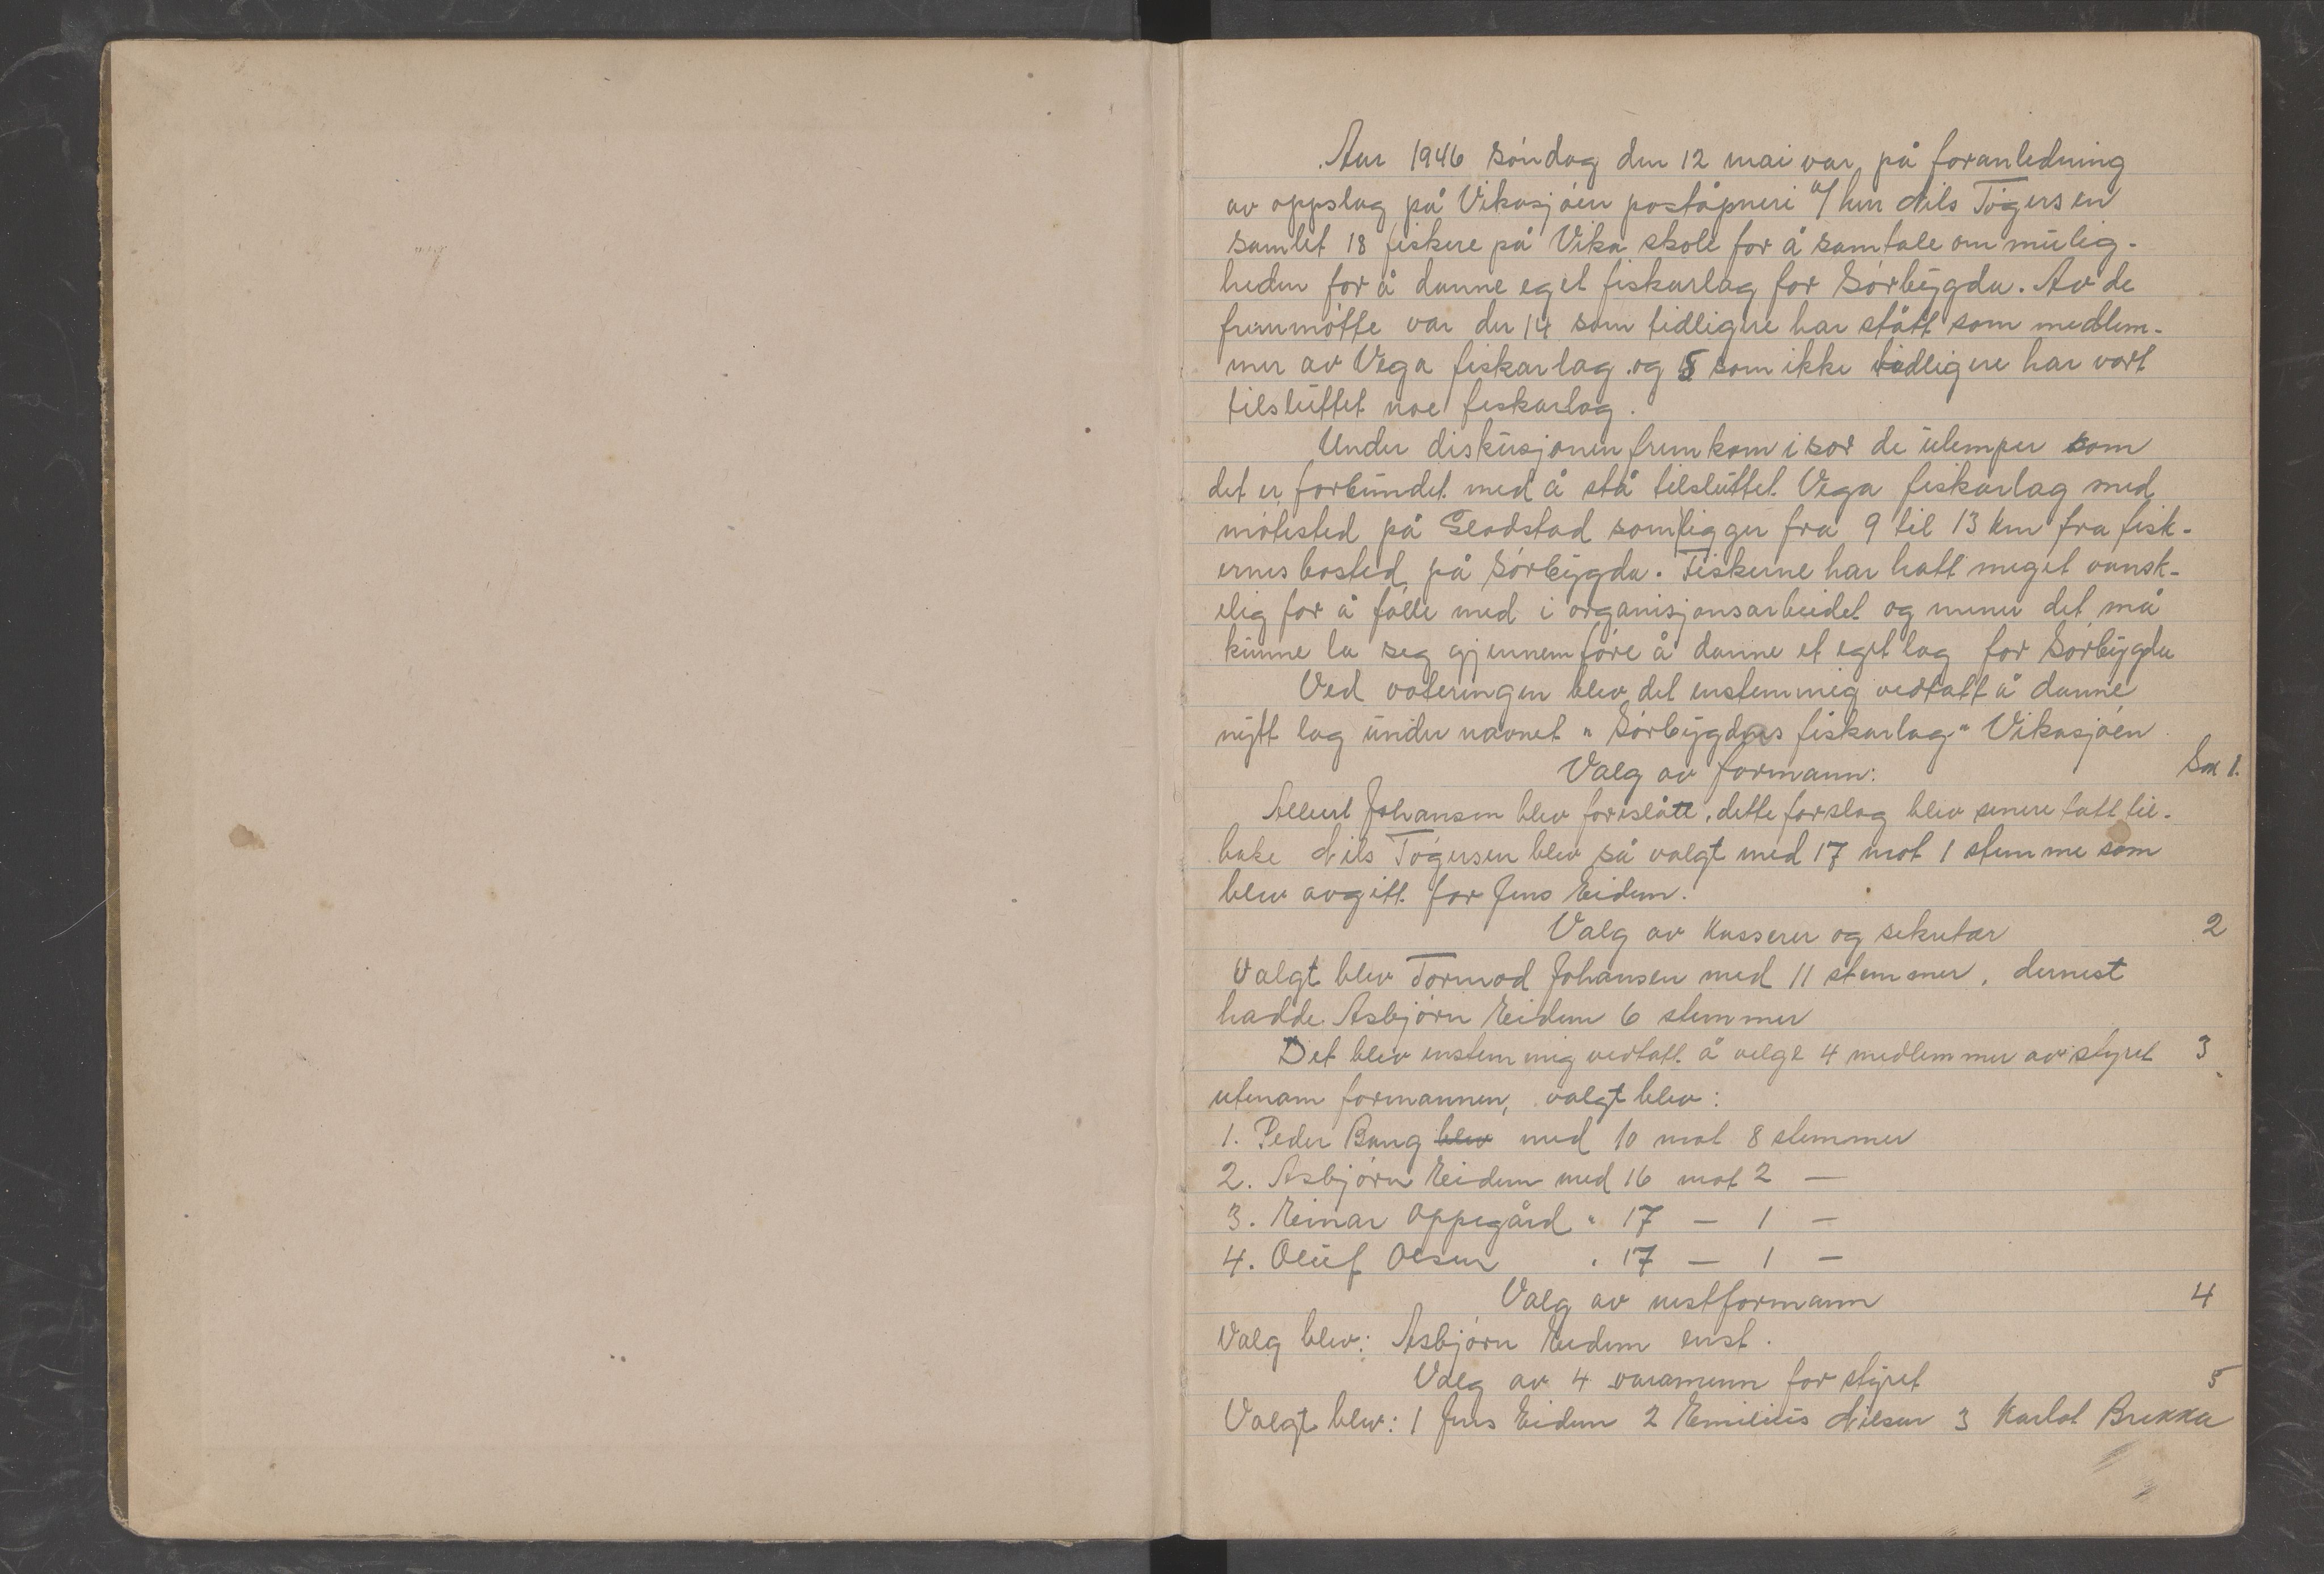 Aar 1946 søndag den 12 mai var på foranledning
av oppslag på Vikasjøen poståpneri a/ herr Nils Tøgersen
samlet 18 fiskere på Vika skole for å samtale om mulig-
heden for å danne eget fiskarlag for Sørbygda. Av de
fremmøtte var der 14 som tidligere har stått som medlem-
mer av Vega fiskarlag og 5 som ikke tidligere har vært
tilsluttet noe fiskarlag.
Under diskusjonen fremkom i sær de ulemper som
det er forbundet med å stå tilsluttet Vega fiskarlag med
møtested på Gladstad som ligger fra 9 til 13 km fra fisk-
ernes bosted på Sørbygda. Fiskerne har hatt meget vansk-
elig for å følle med i organisjonsarbeidet og mener det må
kunne la seg gjennemføre å danne et eget lag for Sørbygda
Ved voteringen blev det enstemmig vedtatt å danne
nytt lag under navnet " Sørbygdas fiskarlag" Vikasjøen
Valg av formann: Sak 1.
Albert Johansen blev foreslått, dette forslag blev senere tatt til-
bake Nils Tøgersen blev så valgt med 17 mot 1 stemme som
blev avgitt for Jens Eidem.
Valg av kasserer og sekretær 2
Valgt blev Tormod Johansen med 11 stemmer, dernest
hadde Asbjørn Eidem 6 stemmer
Det blev enstemmig vedtatt å velge 4 medlemmer av styret 3
utenom formannen, valgt blev:
1. Peder Bang blev med 10 mot 8 stemmer
2. Asbjørn Eidem med 16 mot 2 —
3. Einar Oppegård " 17 — 1 —
4. Oluf Olsen " 17 — 1 —
Valg av nestformann 4
Valg blev: Asbjørn Eidem enst.
Valg av 4 varamenn for styret 5
Valgt blev: 1 Jens Eidem 2 Emilius Nilsen 3 Karlot Brekka